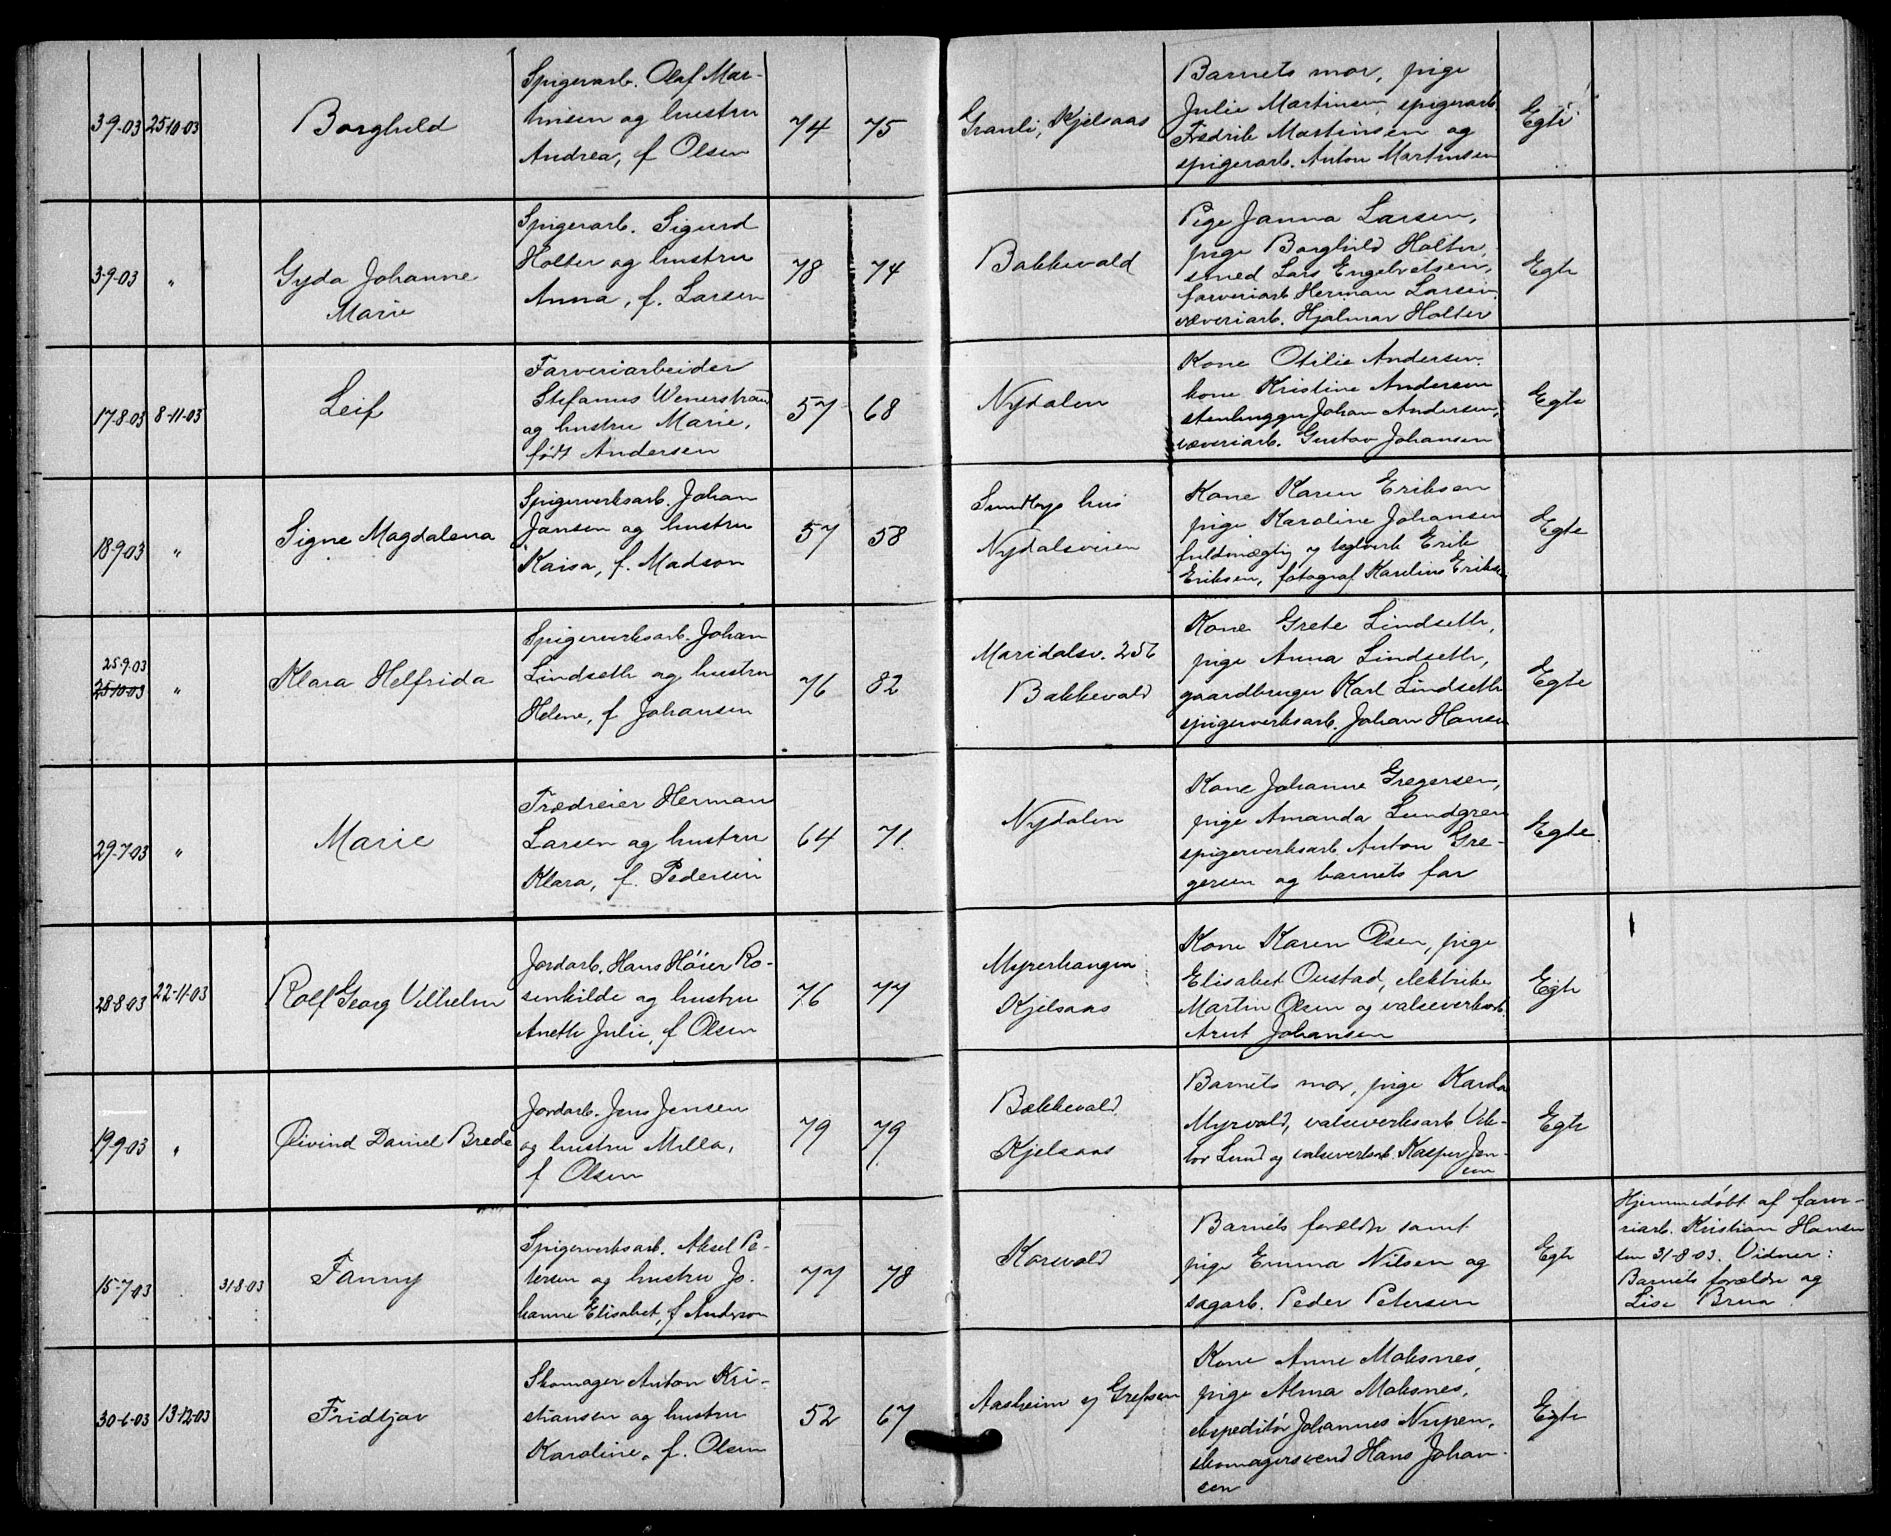 3-9-03 25-10-03
Borghild
Spigerarb. Olaf Mar-
tinsen og hustru
Andrea, f Olsen
74 75
Granli, Kjelsaas
Barnets mor, pige
Julie Martinsen, spigerarb
Fredrik Martinsen og
spigerarb. Anton Martinsen
Egte
3-9-03 "
Gyda Johanne
Marie
Spigerarb. Sigurd
Holter og hustru
Anna, f. Larsen
78 74
Bakkevald
Pige Janna Larsen,
pige Borghild Holter,
smed Lars Engelretsen,
farveriarb Herman Larsen,
væveriarb. Hjalmar Holter
Egte
17-8-03 8-11-03
Leif
Farveriarbeider
Stefanus Wenerstrand
og hustru Marie,
født Andersen
57 68
Nydalen
Kone Otilie Andersen
kone Kristine Andersen
stenhugger Johan Andersen,
væveriarb. Gustav Johansen
Egte
18-9-03 "
Signe Magdalena
Spigerverksarb. Johan
Jansen og hustru
Kaisa, f. Madson
57 58
Sundbys hus
Nydalsveien
Kone Karen Eriksen
pige Karoline Johansen
fuldmægtig v teglverk Erik
Eriksen, fotograf Karelius Eriksen
Egte
25-9-03
25-10-03 "
Klara Helfrida
Spigerverksarb. Johan
Lindseth og hustru
Helene, f Johansen
76 82
Maridalsv. 256
Bakkevald
Kone Grete Lindseth,
pige Anna Lindseth,
gaardbruger Karl Lindseth
spigerverksarb. Johan Hansen
Egte
29-7-03 "
Marie
Trædreier Herman
Larsen og hustru
Klara, f. Pedersen
64 71
Nydalen
Kone Johanne Gregersen,
pige Amanda Lundgren
spigerverksarb. Anton Gre-
gersen og barnets far
Egte
28-8-03 22-11-03
Rolf Georg Vilhelm
Jordarb. Hans Höier Ro-
senkilde og hustru
Anette Julie, f Olsen
76 77
Myrerhaugen
Kjelsaas
Kone Karen Olsen, pige
Elisabet Oustad, elektriker
Martin Olsen og valseverksarb.
Arnt Johansen
Egte
19-9-03 "
Øivind Daniel Brede
Jordarb. Jens Jensen
og hustru Milla,
f Olsen
79 79
Bakkevald
Kjelsaas
Barnets mor, pige Karda
Myrvold, valseverksarb Vik-
tor Lund og valseverksarb. Kasper Jen-
sen
Egte
15-7-03 31-8-03
Fanny
Spigerverksarb. Aksel Pe-
tersen og hustru Jo-
hanne Elisabet, f Anderson
77 78
Korsvold
Barnets forældre samt
pige Emma Nilsen og
sagarb. Peder Petersen
Egte
Hjemmedöbt af farve-
riarb. Kristian Hansen
den 31-8-03. Vidner:
Barnets forældre og
Lise Brua
30-6-03 13-12-03
Fridtjov
Skomager Anton Kri-
stiansen og hustru
Karoline, f. Olsen
52 67
Aasheim v Grefsen
Kone Anne Moksnes,
pige Alma Moksnes,
ekspeditör Johannes Nupen,
skomagersvend Hans Johan-
sen
Egte